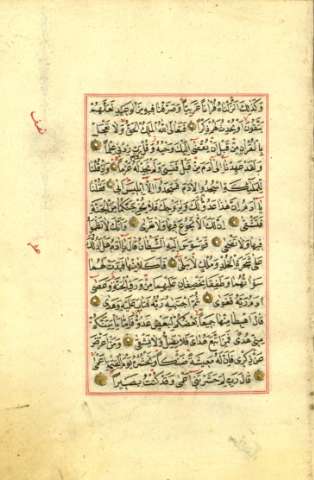 وَكَذٰلِكَ اَنْزَلْنَاهُ قُرْاٰنًا عَرَبِيًّا وَصَرَّفْنَا فِيهِ مِنَ الْوَعِيدِ لَعَلَّهُمْ
يَتَّقُونَ اَوْ يُحْدِثُ لَهُمْ ذِكْرًا فَتَعَالَى اللّٰهُ الْمَلِكُ الْحَقُّ وَلَا تَعْجَلْ
بِالْقُرْاٰنِ مِنْ قَبْلِ اَنْ يُقْضٰى اِلَيْكَ وَحْيُهُ وَقُلْ رَبِّ زِدْنِي عِلْمًا
وَلَقَدْ عَهِدْنَا اِلٰى اٰدَمَ مِنْ قَبْلُ فَنَسِيَ وَلَمْ نَجِدْ لَهُ عَزْمًا وَاِذْ قُلْنَا
لِلْمَلٰئِكَةِ اسْجُدُوا لِاٰدَمَ فَسَجَدُوا اِلَّا اِبْلِيسَ اَبٰى فَقُلْنَا
يَا اٰدَمُ اِنَّ هٰذَا عَدُوٌّ لَكَ وَلِزَوْجِكَ فَلَا يُخْرِجَنَّكُمَا مِنَ الْجَنَّةِ
فَتَشْقٰى اِنَّ لَكَ اَلَّا تَجُوعَ فِيهَا وَلَا تَعْرٰى وَاَنَّكَ لَا تَظْمَؤُا
فِيهَا وَلَا تَضْحٰى فَوَسْوَسَ اِلَيْهِ الشَّيْطَانُ قَالَ يَا اٰدَمُ هَلْ اَدُلُّكَ
عَلٰى شَجَرَةِ الْخُلْدِ وَمُلْكٍ لَا يَبْلٰى فَاَكَلَا مِنْهَا فَبَدَتْ لَهُمَا
سَوْاٰتُهُمَا وَطَفِقَا يَخْصِفَانِ عَلَيْهِمَا مِنْ وَرَقِ الْجَنَّةِ وَعَصٰى
اٰدَمُ رَبَّهُ فَغَوٰى ثُمَّ اجْتَبٰيهُ رَبُّهُ فَتَابَ عَلَيْهِ وَهَدٰى
قَالَ اهْبِطَا مِنْهَا جَمِيعًا بَعْضُكُمْ لِبَعْضٍ عَدُوٌّ فَاِمَّا يَاْتِيَنَّكُمْ
مِنِّي هُدًى فَمَنِ اتَّبَعَ هُدَايَ فَلَا يَضِلُّ وَلَا يَشْقٰى وَمَنْ اَعْرَضَ
عَنْ ذِكْرِي فَاِنَّ لَهُ مَعِيشَةً ضَنْكًا وَنَحْشُرُهُ يَوْمَ الْقِيٰمَةِ اَعْمٰى
قَالَ رَبِّ لِمَ حَشَرْتَنِي اَعْمٰى وَقَدْ كُنْتُ بَصِيرًا